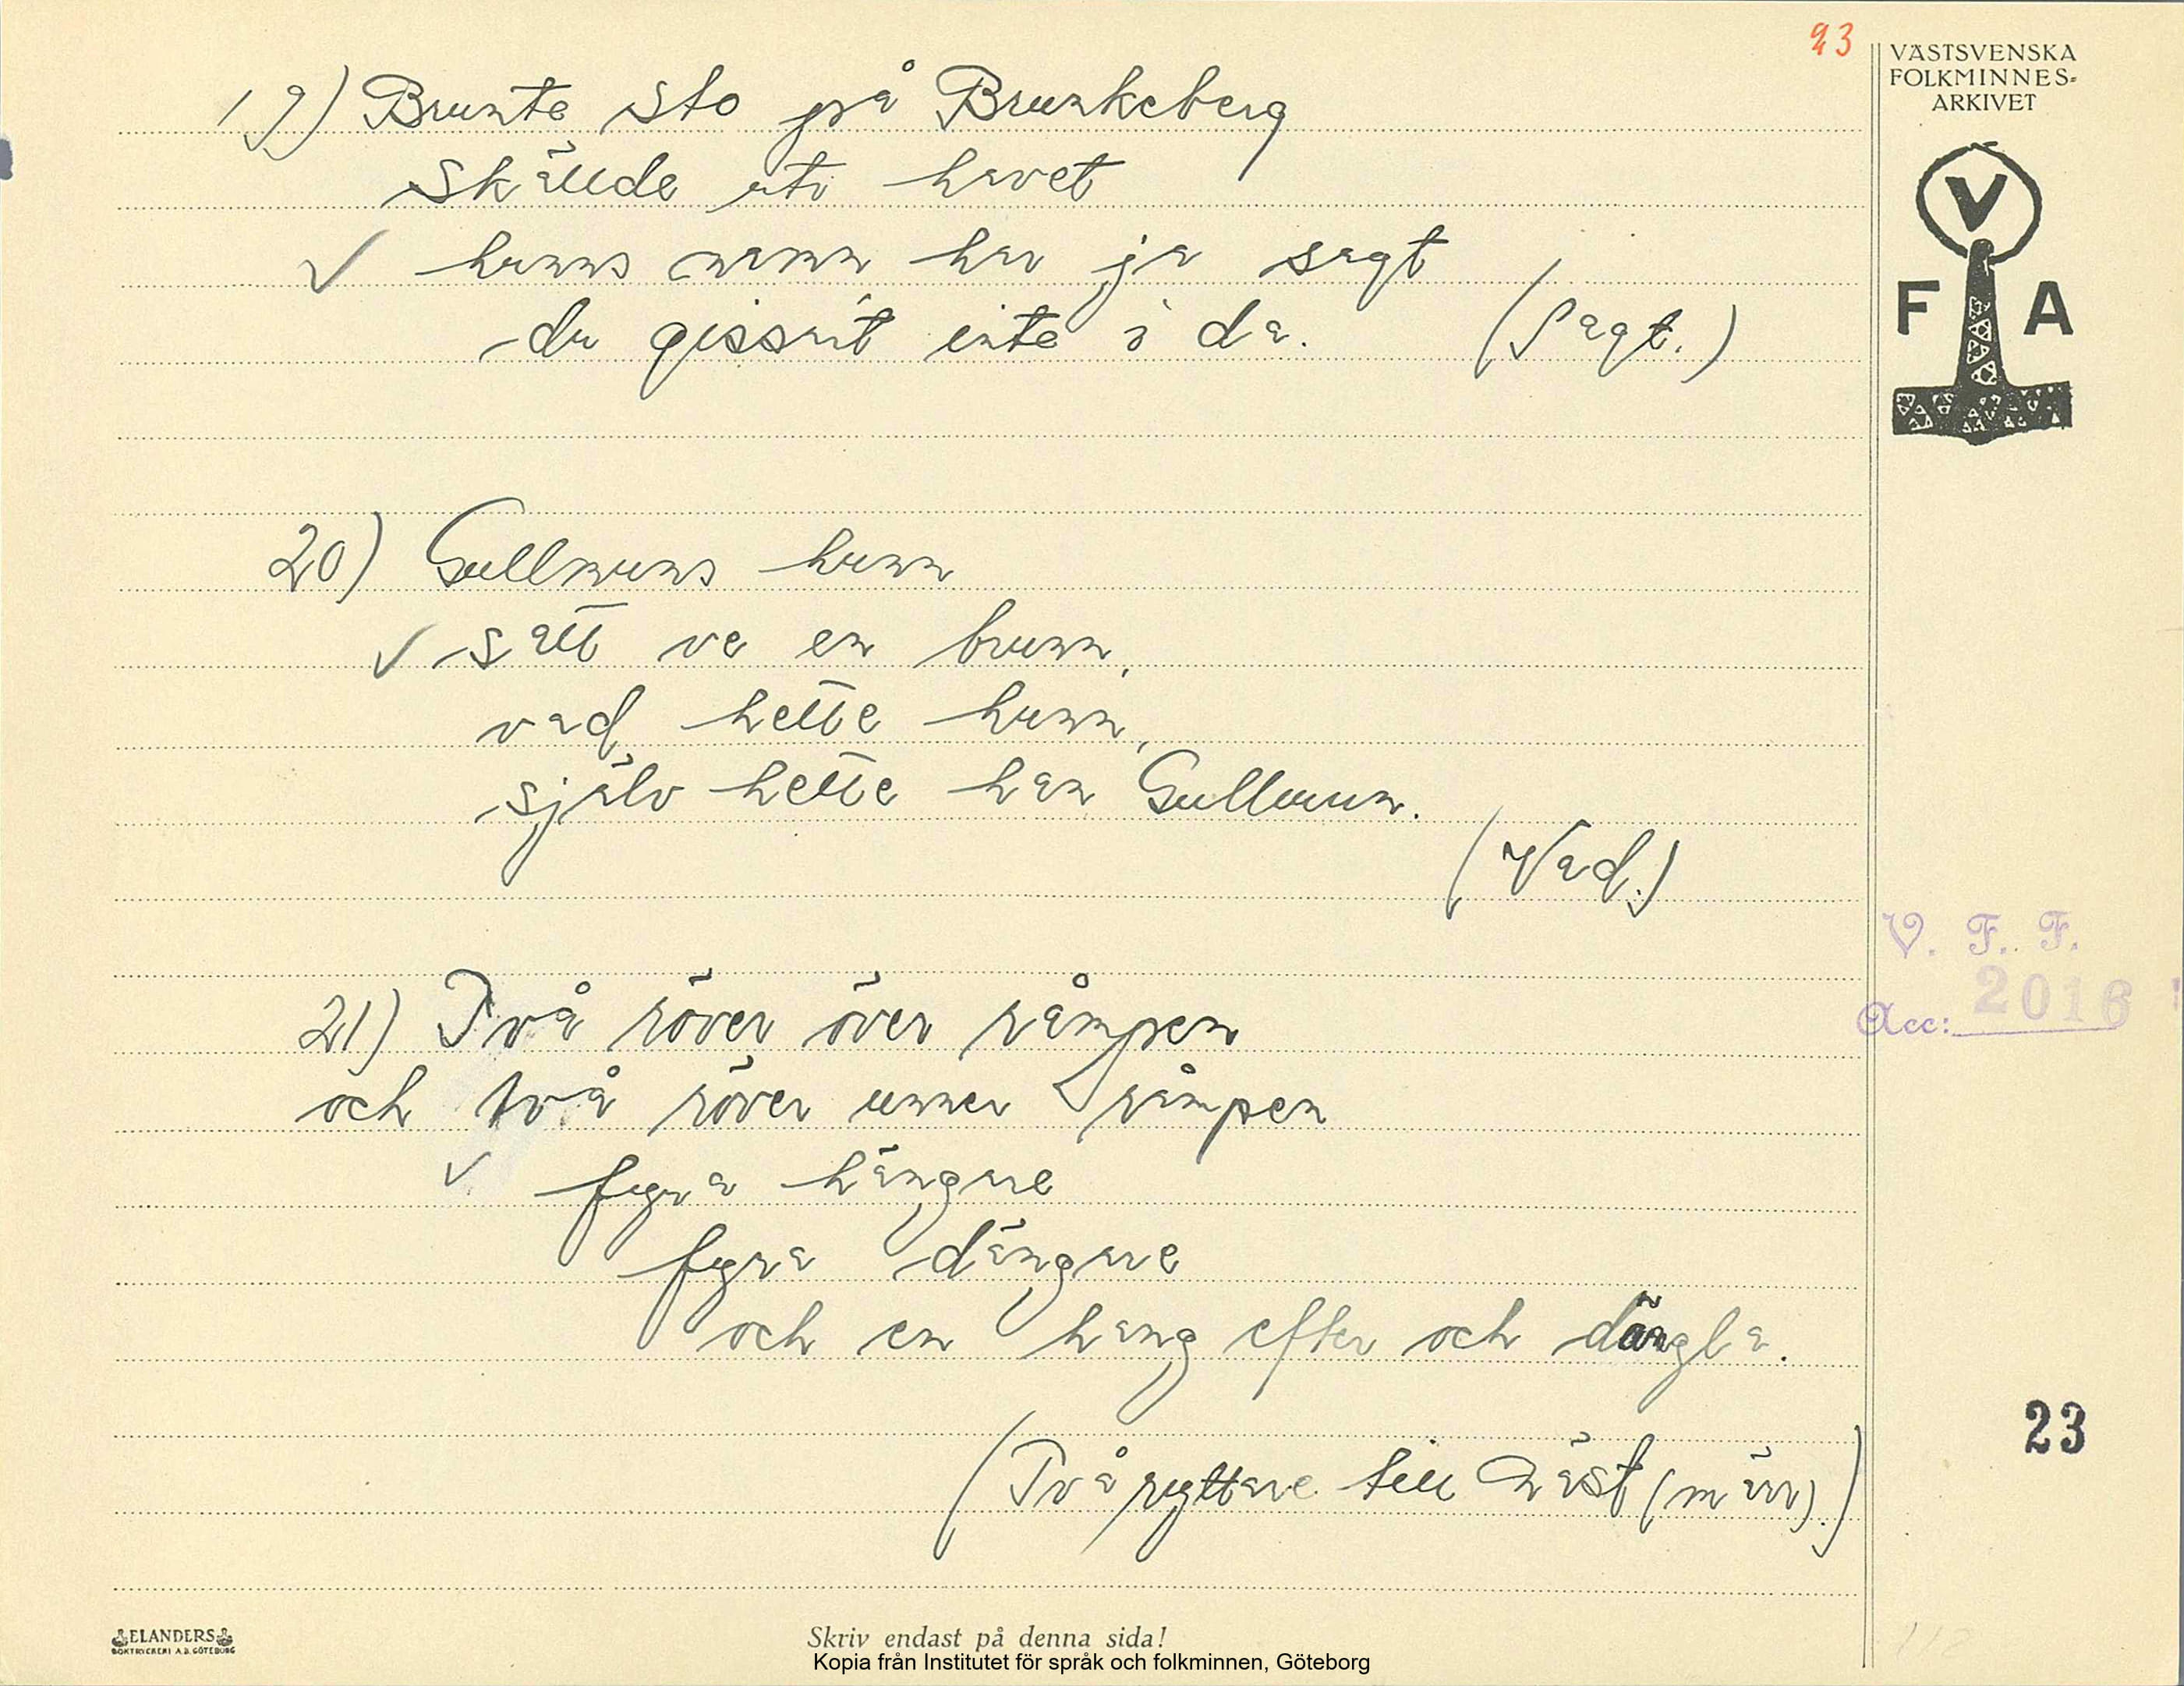 23
VÄSTSVENSKA
FOLKMINNES-
ARKIVET
V
F A
19) Brunte sto på Brunkeberg
skällde uti havet
✓ hunns namn har ja sagt
du gissat inte i da. (Sagt.)
20) Gullmuns hunn
✓ satt ve en brunn,
vad hette hunn,
själv hette han Gullmun.
(Vad.)
V. F. F.
Acc: 2016
21) Två röver över råmpen
och två röver unner råmpen
✓ fyra hängare
fyra dängare
och en hang efter och dängla.
23
(Två ryttare till häst (märr).)
112
ELANDERS
BOKTRYCKERI A.B. GÖTEBORG
Skriv endast på denna sida!
Kopia från Institutet för språk och folkminnen, Göteborg